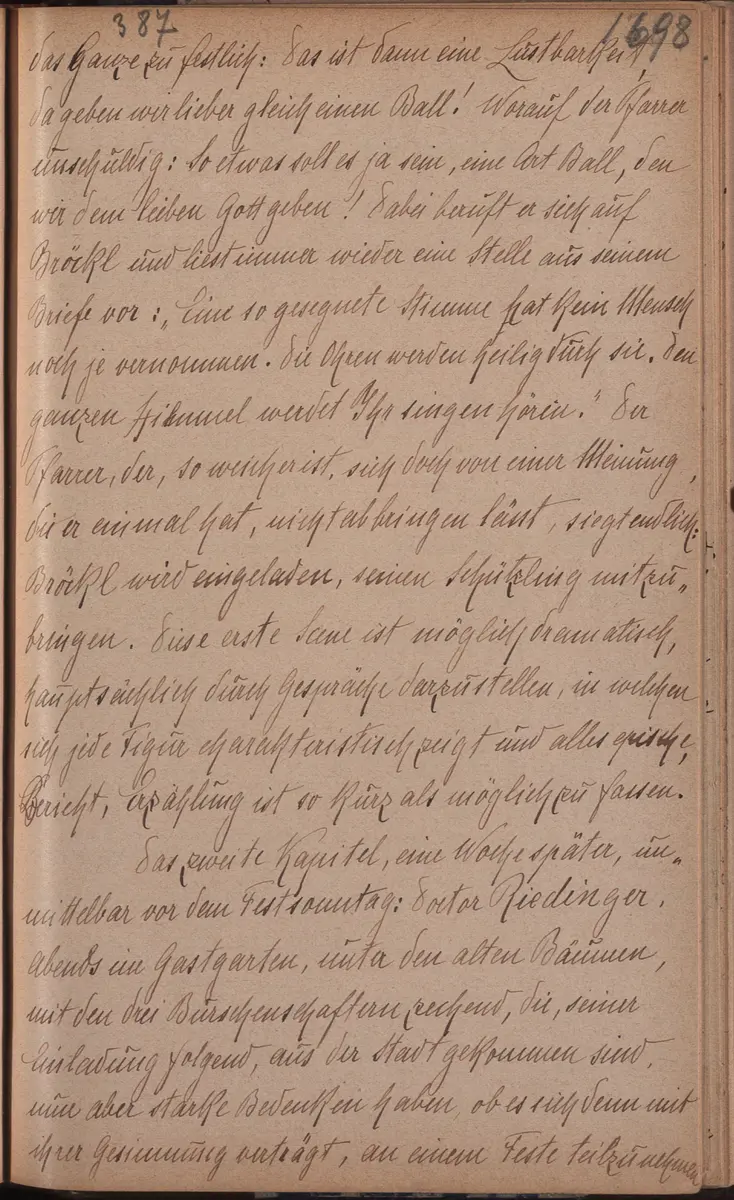 387 1698
das Ganze zu festlich: das ist dann eine Lustbarkeit,
da geben wir lieber gleich einen Ball! Worauf der Pfarrer
unschuldig: So etwas soll es ja sein, eine Art Ball, den
wir dem lieben Gott geben! Dabei beruft er sich auf
Bröckl und liest immer wieder eine Stelle aus seinem
Briefe vor: „Eine so gesegnete Stimme hat kein Mensch
noch je vernommen. Die Ohren werden heilig durch sie. Den
ganzen Himmel werdet Ihr singen hören." Der
Pfarrer, der, so weich er ist, sich doch von einer Meinung,
die er einmal hat, nicht abbringen lässt, siegt endlich:
Bröckl wird eingeladen, seinen Schützling mitzu„
bringen. Diese erste Scene ist möglich dramatisch,
hauptsächlich durch Gespräche darzustellen, in welchen
sich jede Figur charakteristisch zeigt und alles epische,
Bericht, Erzählung ist so kurz als möglich zu fassen.
Das zweite Kapitel, eine Woche später, un„
mittelbar vor dem Festsonntag: Doctor Riedinger,
abends im Gastgarten, unter den alten Bäumen,
mit den drei Burschenschaftern zechend, die, seiner
Einladung folgend, aus der Stadt gekommen sind,
nun aber starke Bedenken haben, ob es sich denn mit
ihrer Gesinnung verträgt, an einem Feste teilzunehmen